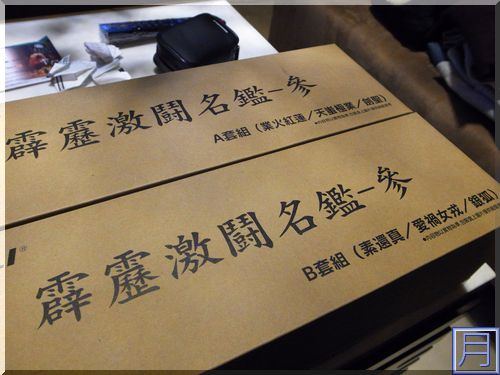 霹靂激鬪名鑑-參
A套組（業火紅蓮／天蚩極業／劍聖）
霹靂激鬪名鑑-參
B套組（素還真／愛禍女戎／銀狐）
月